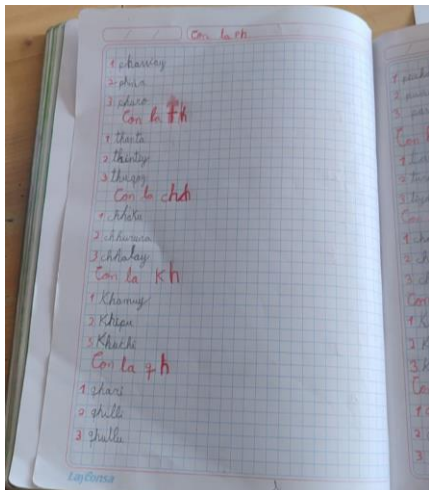 Con la ph
1 phaway
2 phiri
3 phuco
Con la th
1 thanta
2 thintiy
3 thuqay
Con la chh
1 chhaka
2 chhurura
3 chhalay
Con la Kh
1 Khamuy
2 Khipu
3 Khachi
Con la qh
1 qhari
2 qhilli
3 qhulla
Layconsa